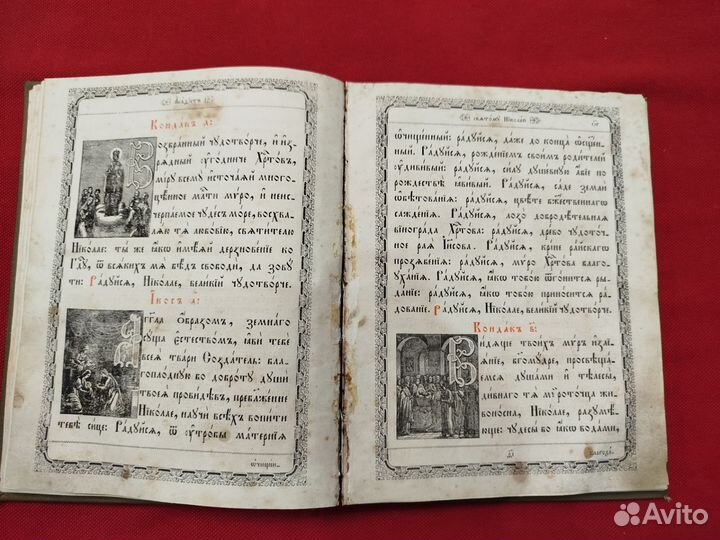 Кондакъ а҃:
Возбранный чꙋдотворче, и҆ и҆з-
рѧдный ᲂу҆го́дниче Хрⷭ҇то́въ,
мі́рꙋ всемꙋ̀ и҆сточа́ѧй много-
цѣ́нное ми́лости мѵ́ро, и҆ неис-
черпа́емое чꙋде́съ мо́ре, восхва-
лѧ́ю тѧ̀ любо́вїю, свѧти́телю
Нїко́лае: ты́ же ꙗ҆́кѡ и҆мѣ́ѧй дерзнове́нїе ко
Гдⷭ҇ꙋ, ѿ всѧ́кихъ мѧ̀ бѣ́дъ свободѝ, да зовꙋ̀
тѝ: Ра́дꙋйсѧ, Нїко́лае, вели́кїй чꙋдотво́рче.
І҆́косъ а҃:
А҆́гг҃ла ѻ҆́бразомъ, земна́го
сꙋ́ща є҆стество́мъ, ꙗ҆вѝ тебѐ
всеѧ̀ тва́ри Созда́тель: бла-
гоплодную бо доброту души
твоеѧ̀ провидѣвъ, пребл҃же́нне
Нїко́лае, наꙋчѝ всѣ́хъ вопи́ти
тебѣ̀ си́це: Ра́дꙋйсѧ, ѿ ᲂу҆тро́бы ма́тернїѧ
ѡ҆чище́н.
Свѧто́мꙋ Нїкола́ю
ѡ҆чище́нный: ра́дꙋйсѧ, да́же до конца̀ ѡ҆сщ҃е́н-
ный. Ра́дꙋйсѧ, рожде́нїемъ свои́мъ роди́телей
ᲂу҆диви́вый: ра́дꙋйсѧ, си́лꙋ дꙋше́внꙋю а҆́бїе по
рождествѣ̀ ꙗ҆ви́вый. Ра́дꙋйсѧ, са́де землѝ
ѡ҆бѣтова́нїѧ: ра́дꙋйсѧ, цвѣ́те бж҃е́ственнагѡ
сажде́нїѧ. Ра́дꙋйсѧ, лозо̀ добродѣ́тельнаѧ
вїногра́да Хрⷭ҇то́ва: ра́дꙋйсѧ, дре́во чꙋдоточ-
ное раѧ̀ І҆и҃сова. Ра́дꙋйсѧ, кри́не ра́йскагѡ
прозѧбе́нїѧ: ра́дꙋйсѧ, мѵ́ро Хрⷭ҇то́ва благо-
ꙋха́нїѧ. Ра́дꙋйсѧ, ꙗ҆́кѡ тобо́ю ѿго́нитсѧ ры-
да́нїе: ра́дꙋйсѧ, ꙗ҆́кѡ тобо́ю прино́ситсѧ ра-
дованїе. Ра́дꙋйсѧ, Нїко́лае, вели́кїй чꙋдотво́рче.
Конда́къ в҃:
Ви́дѧще твои́хъ мѵ́ръ и҆злїѧ́-
нїе, бг҃омꙋ́дре, просвѣща́-
емсѧ дꙋша́ми и҆ тѣлесы̀,
ди́внаго тѧ̀ мѵрото́чца жи-
воно́сна, Нїко́лае, разꙋмѣ́-
юще: чꙋдесы́ бо ꙗ҆́кѡ вода́ми,
благода́.
Avito